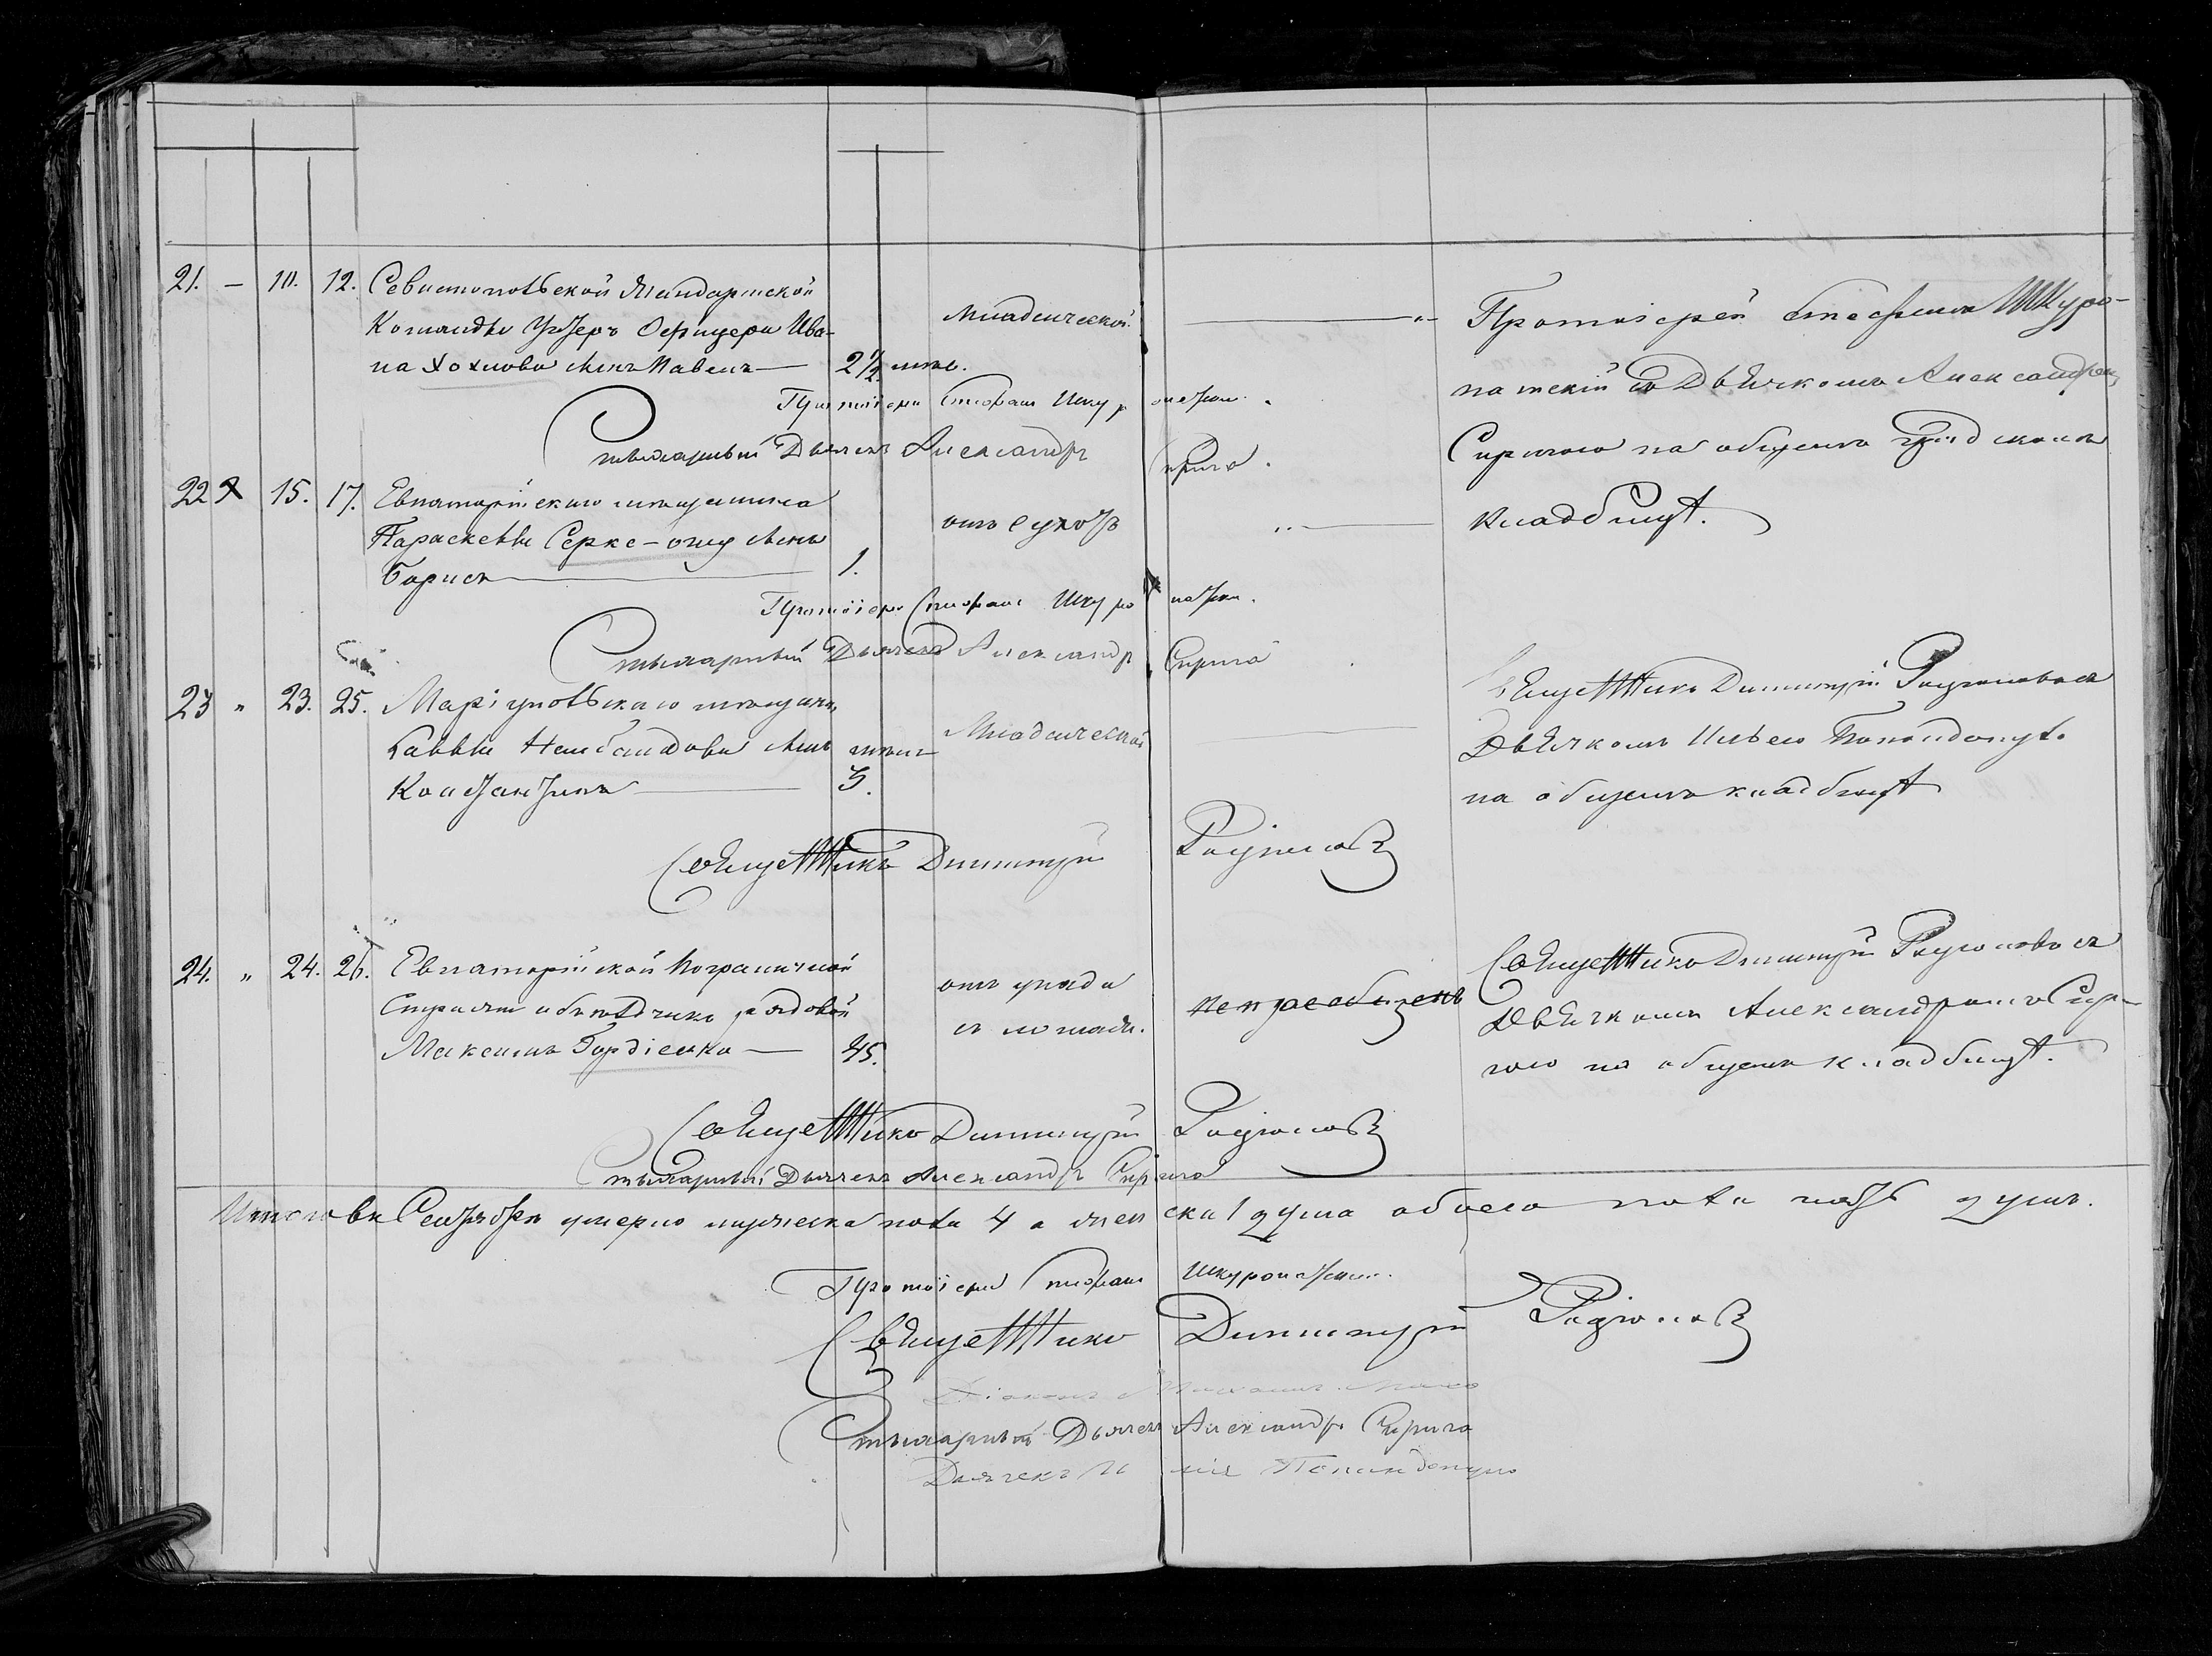 21. — 10. 12. Севастопольской Жандармской
Команды Унтеръ Офицера Ива-
на Хохлова сынъ Павелъ — 2 1/2 лѣт.
Младенческой. —
Протоіерей Стефанъ Шкуро-
патскій съ Дьячкомъ Александром
Сиригою на общемъ градскомъ
кладбищѣ.
Протоіерей Стефанъ Шкуропатскій.
Стихарный Дьячекъ Александръ Сирига.
22 15. 17. Евпаторійскаго мѣщанина
Параскевы Серке-оглу сынъ
Борисъ — 1.
отъ сухотъ —
Протоіерей Стефанъ Шкуропатскій.
Стихарный Дьячекъ Александръ Сирига
23 " 23. 25. Маріупольскаго мѣщанина
Саввы Налбандова сынъ
Константинъ — 5. мѣсяц
Младенческой —
Священникъ Димитрій Родіоновъ съ
Дьячкомъ Ильею Попандопуло
на общемъ кладбищѣ
Священникъ Димитрій Родіоновъ
24. " 24. 26. Евпаторійской Пограничной
Стражи объѣздчикъ рядовой
Максимъ Гордіенко — 45.
отъ упада
съ лошади.
непріобщенъ
Священникъ Димитрій Родіоновъ съ
Дьячкомъ Александромъ Сири-
гою на общемъ кладбищѣ.
Священникъ Димитрій Родіоновъ
Стихарный Дьячекъ Александръ Сирига
Итого въ Сентябрѣ умерло мужеска пола 4 а женска 1 душа обоего пола пять душъ.
Протоіерей Стефанъ Шкуропатскій.
Священникъ Димитрій Родіоновъ
Діаконъ
Стихарный Дьячекъ Александръ Сирига
Дьячекъ Илія Попандопуло